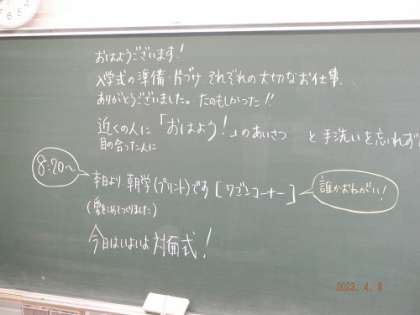 おはようございます!
入学式の準備・片づけ それぞれの大切なお仕事、
ありがとうございました。たのもしかった!!
近くの人に「おはよう!」のあいさつ と 手洗いを忘れず
目の合った人に
8:20〜
本日より 朝学(プリント)です[ワゴンコーナー]
誰かおねがい!
(愛をこめてつくりました)
今日はいよいよ 対面式!
2023. 4.